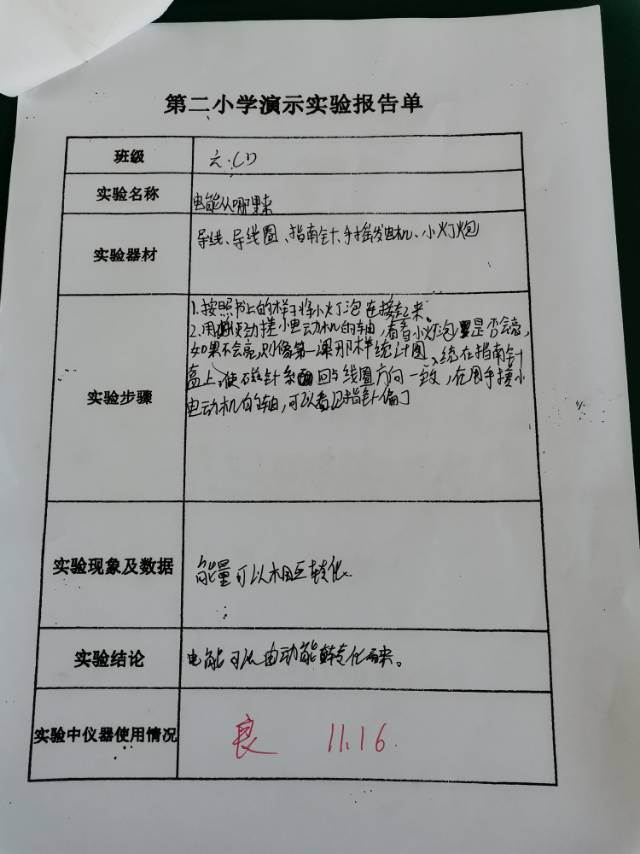 第二小学演示实验报告单
班级 六.(1)
实验名称 电能从哪里来
实验器材 导线、导线圈、指南针、手摇发电机、小灯炮
实验步骤
1.按照书上的样子将小灯泡连接起来。
2.用快动搓小电动机的轴,看看小灯泡是否会亮,
如果不会亮,则像第一课那样绕计圈、绕在指南针
盒上,使磁针 回与线圈方向一致,在用手搓小
电动机的轴,可以看见指针偏了
实验现象及数据 能量可以相互转化.
实验结论 电能可以由动能转化而来。
实验中仪器使用情况 良 11.16.